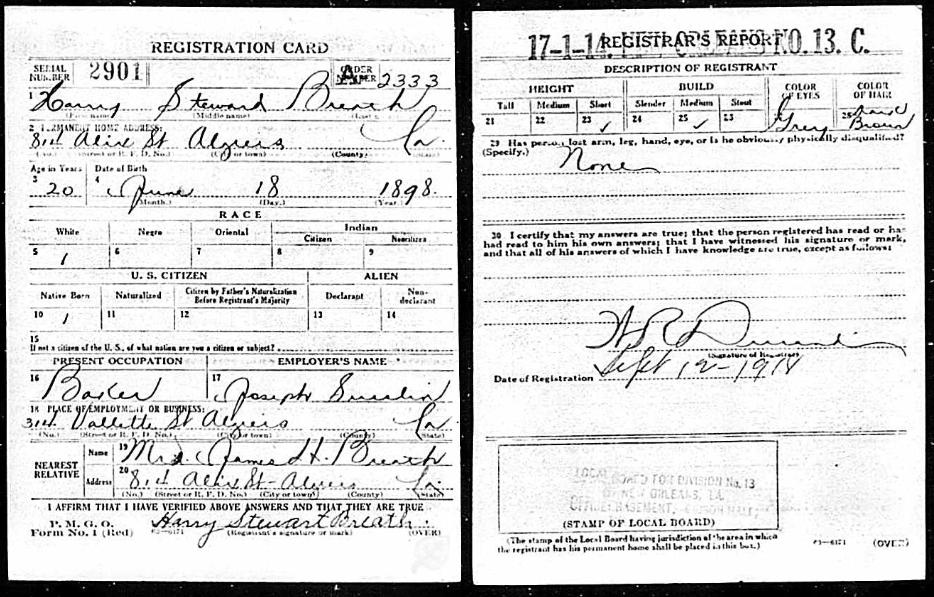 REGISTRATION CARD
SERIAL NUMBER 2901 ORDER NUMBER A 2333
1 Harry Steward Breath
(First name) (Middle name) (Last name)
2 PERMANENT HOME ADDRESS:
814 Alix St Algiers La
(No.) (Street or R. F. D. No.) (City or town) (County) (State)
Age in Years Date of Birth
3 20 4 June 18 1898.
(Month.) (Day.) (Year.)
RACE
White Negro Oriental Indian
Citizen Noncitizen
5 1 6 7 8 9
U. S. CITIZEN ALIEN
Native Born Naturalized Citizen by Father's Naturalization Before Registrant's Majority Declarant Non-declarant
10 1 11 12 13 14
15
If not a citizen of the U. S., of what nation are you a citizen or subject?
PRESENT OCCUPATION EMPLOYER'S NAME
16 Baker 17 Joseph
18 PLACE OF EMPLOYMENT OR BUSINESS:
314 Vallette St Algiers La
(No.) (Street or R. F. D. No.) (City or town) (County) (State)
NEAREST RELATIVE Name 19 Mrs. James H. Breath
Address 20 814 Alix St - Algiers La
(No.) (Street or R. F. D. No.) (City or town) (County) (State)
I AFFIRM THAT I HAVE VERIFIED ABOVE ANSWERS AND THAT THEY ARE TRUE
P. M. G. O.
Form No. 1 (Red) Harry Stewart Breath
(Registrant's signature or mark) (OVER)
17-1-14. REGISTRAR'S REPORT NO. 13. C.
DESCRIPTION OF REGISTRANT
HEIGHT BUILD COLOR OF EYES COLOR OF HAIR
Tall Medium Short Slender Medium Stout
21 22 23 ✓ 24 25 ✓ 23 Grey Brown
29 Has person lost arm, leg, hand, eye, or is he obviously physically disqualified?
(Specify.) None
30 I certify that my answers are true; that the person registered has read or has
had read to him his own answers; that I have witnessed his signature or mark,
and that all of his answers of which I have knowledge are true, except as follows:
(Signature of Registrar)
Date of Registration Sept 12-1918
LOCAL BOARD FOR DIVISION No. 13
OF NEW ORLEANS, LA.
BASEMENT,
(STAMP OF LOCAL BOARD)
(The stamp of the Local Board having jurisdiction of the area in which
the registrant has his permanent home shall be placed in this box.)
(OVER)